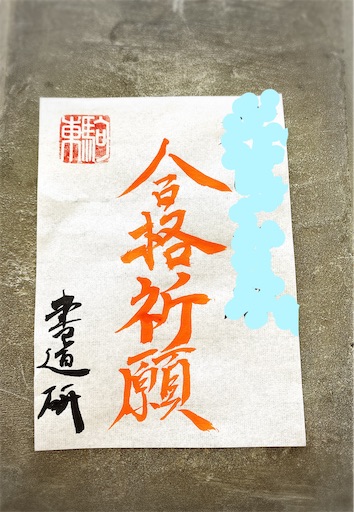 合格祈願
駒東
書道研